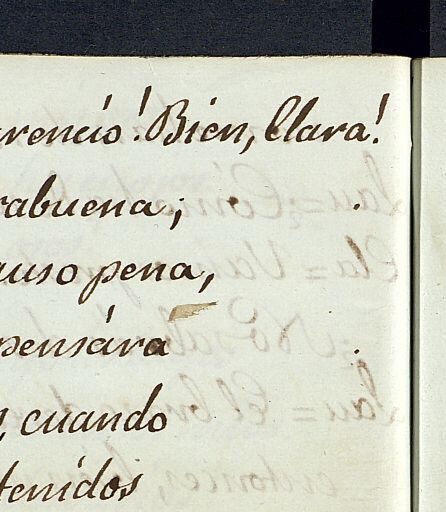 arencio! Bien, Clara!
rabuena;
auso pena,
pensára
, cuando
tenidos